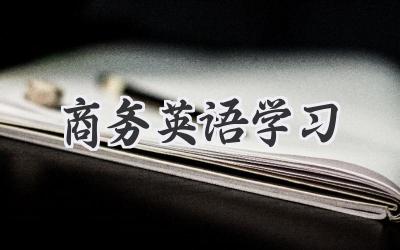 商务英语学习